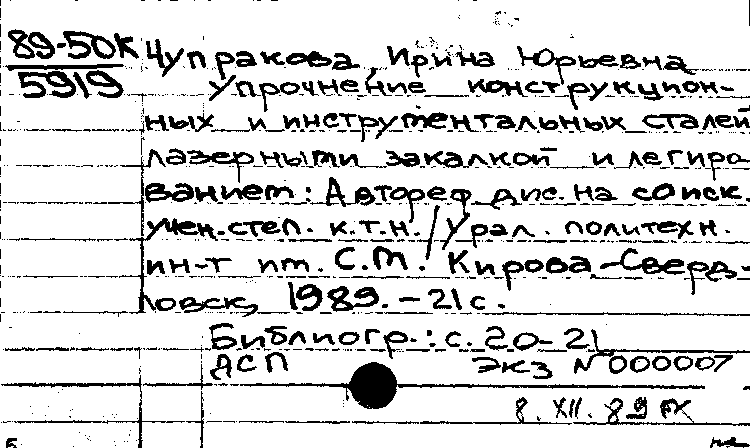 89-50К
5919
Чупракова, Ирина Юрьевна
Упрочнение конструкцион-
ных и инструментальных сталей
лазерными закалкой и легиро
ванием: Автореф. дис. на соиск.
учен. степ. к.т.н. / Урал. политехн.
ин-т им. С.М. Кирова.-Сверд-
ловск, 1989. - 21 с.
Библиогр.: с. 20-21
ДСП экз № 000007
8. XII. 89
Б